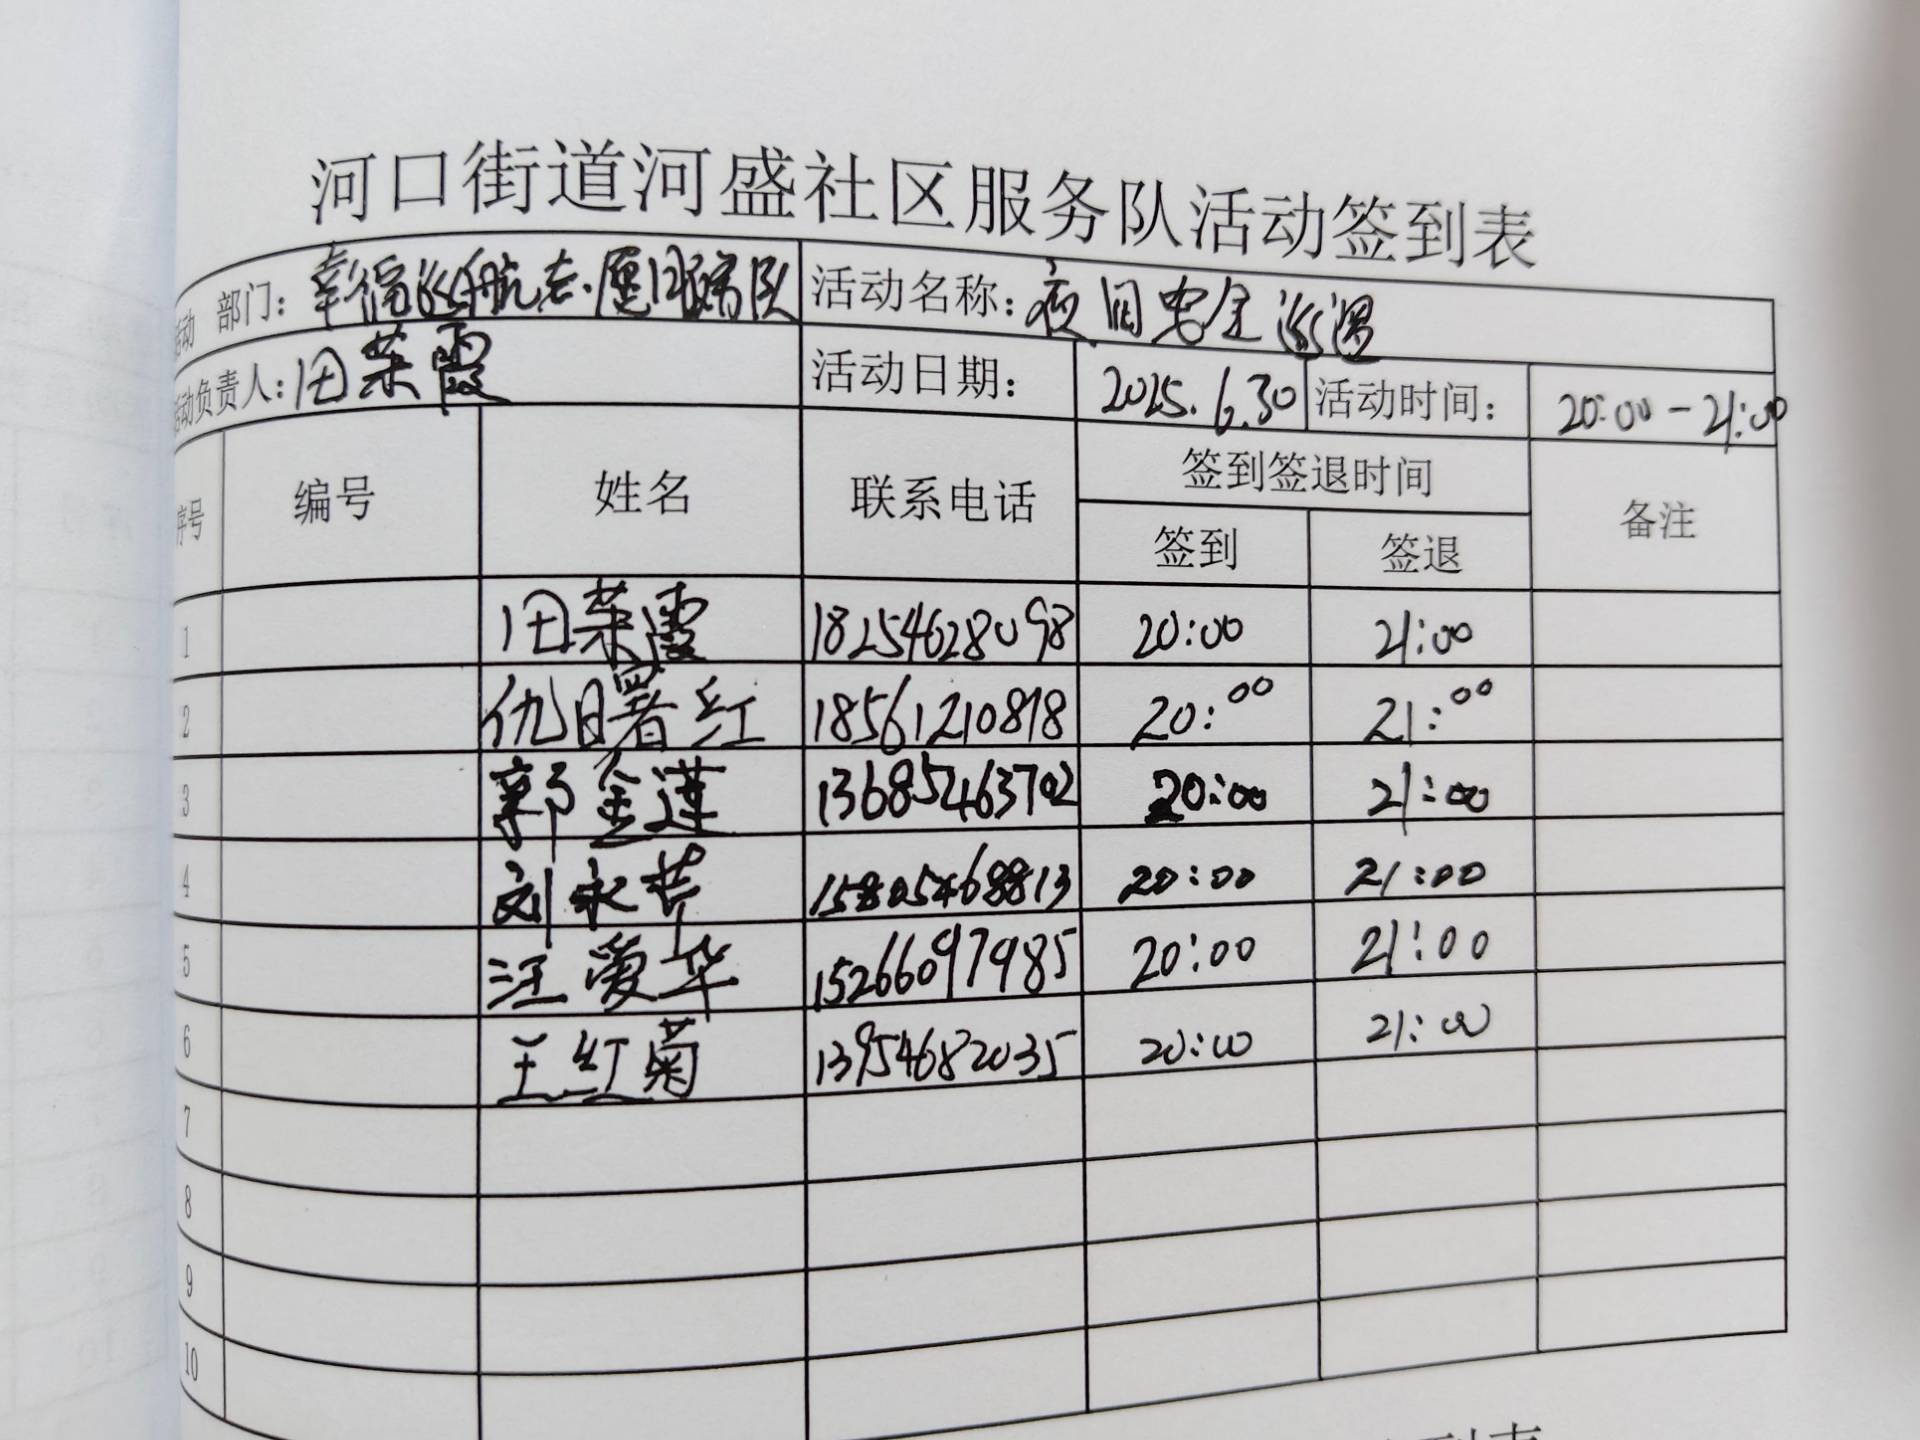 河口街道河盛社区服务队活动签到表
活动 部门：幸福巡航志愿服务队 活动名称：夜间安全巡逻
活动负责人：田荣霞 活动日期： 2025.6.30 活动时间： 20:00-21:00
序号 编号 姓名 联系电话 签到签退时间 备注
签到 签退
1 田荣霞 18254628098 20:00 21:00
2 仇曙红 18561210818 20:00 21:00
3 郭金莲 13685463702 20:00 21:00
4 刘永芹 15805468813 20:00 21:00
5 汪爱华 15266097985 20:00 21:00
6 王红菊 13954682035 20:00 21:00
7
8
9
10
到表